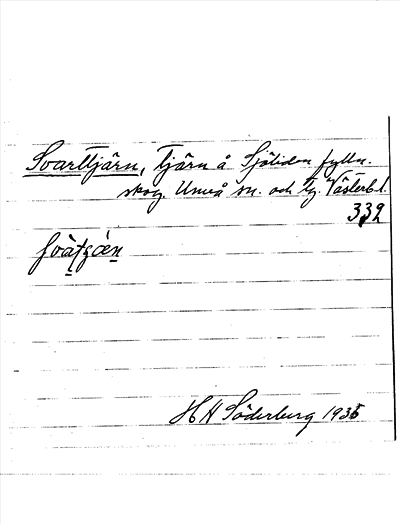 Svarttjärn, tjärn å Sjöliden fylln.
skog, Umeå sn. och tg. Västerb. l.
332
HH Söderberg 1935